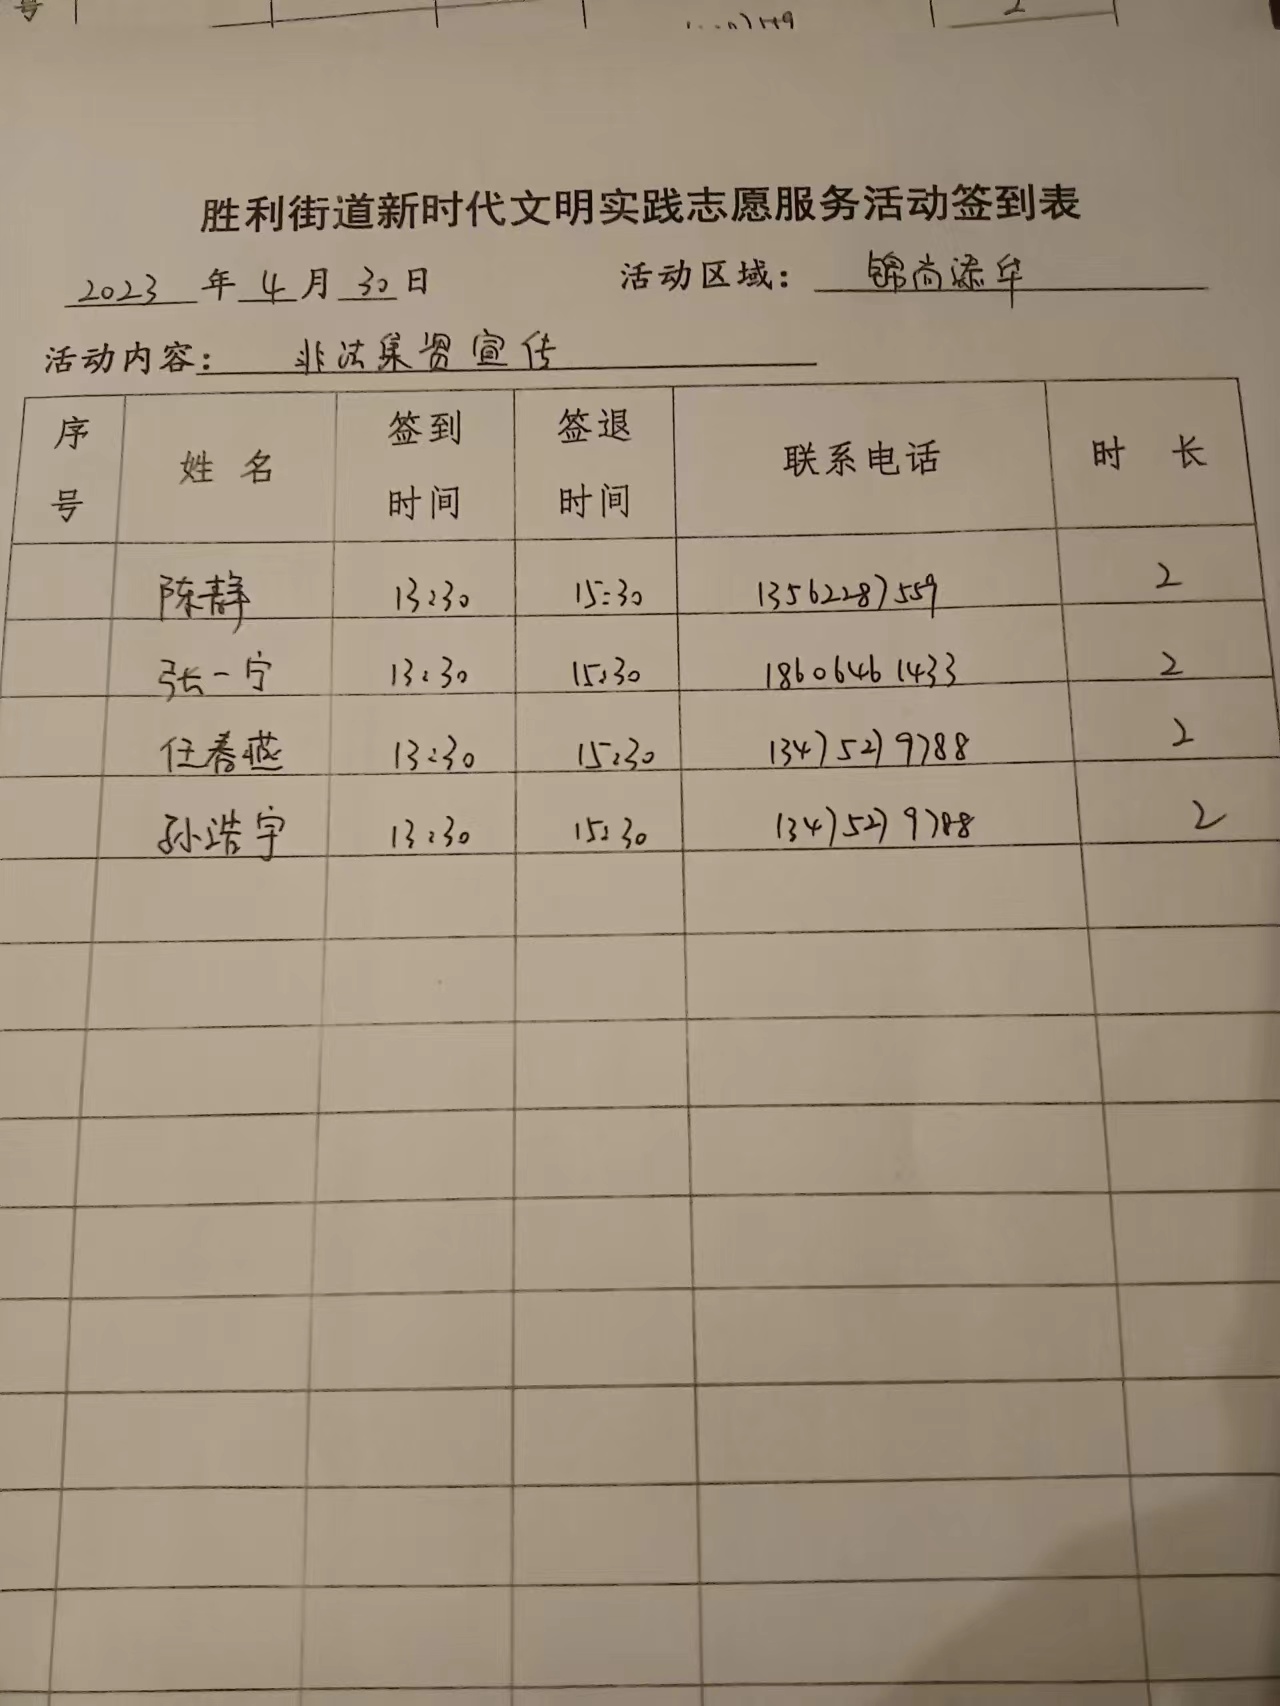 号 2
胜利街道新时代文明实践志愿服务活动签到表
2023 年 4 月 30 日 活动区域： 锦尚添牟
活动内容： 非法集资宣传
序号 姓 名 签到时间 签退时间 联系电话 时 长
陈静 13:30 15:30 13562287559 2
张一宁 13:30 15:30 18606461433 2
任春燕 13:30 15:30 13475279788 2
孙浩宇 13:30 15:30 13475279788 2